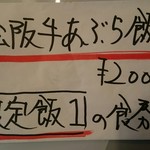 阪牛あぶら飯
¥200
定飯1の食券